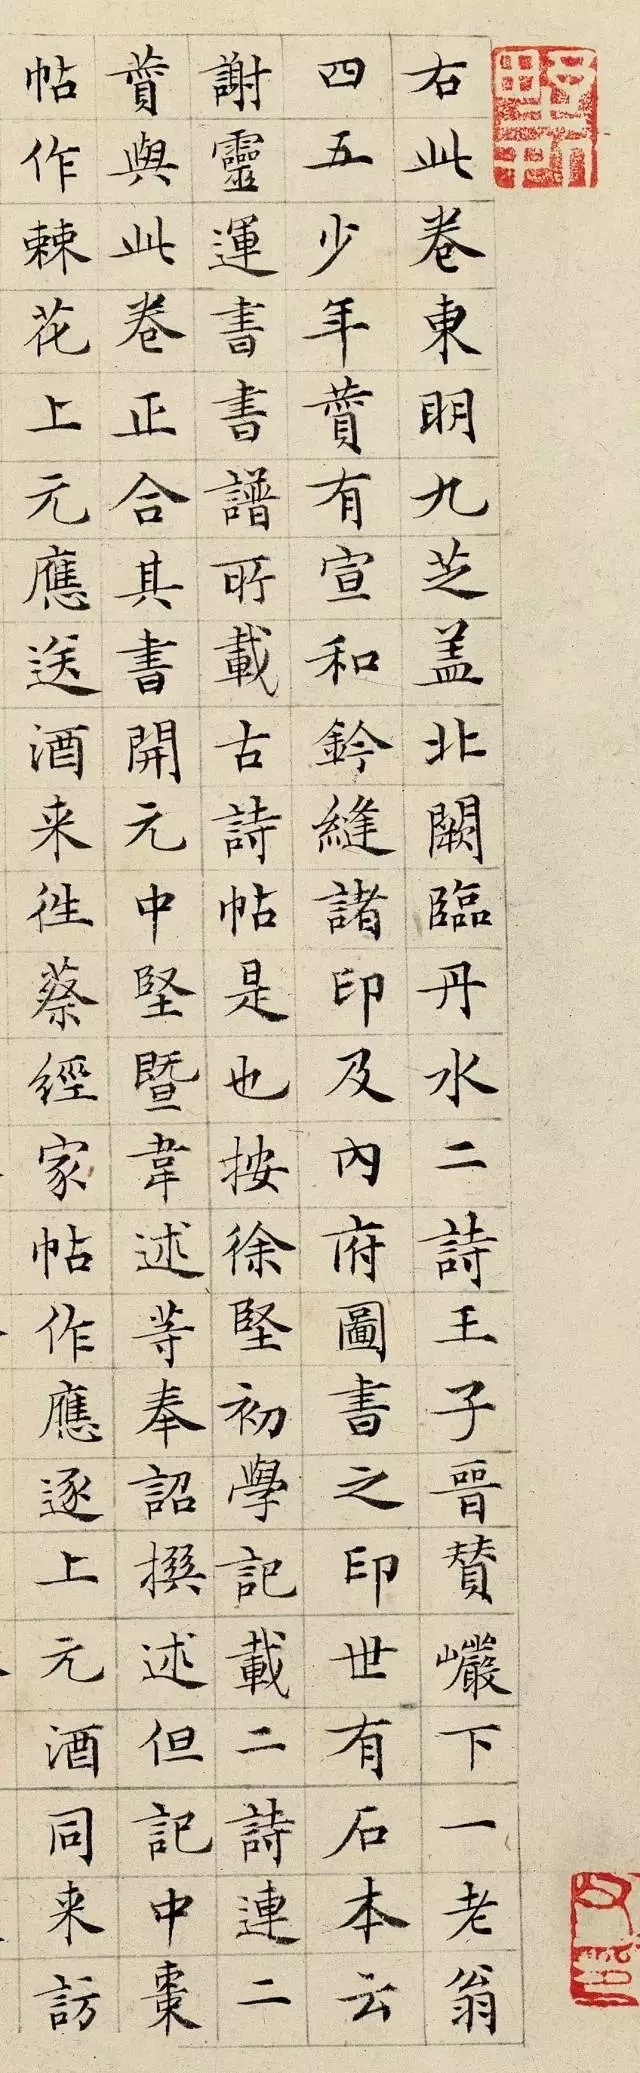 右此卷東明九芝盖北闕臨丹水二詩王子晉賛巗下一老翁
四五少年賛有宣和鈐縫諸印及內府圖書之印世有石本云
謝靈運書書譜所載古詩帖是也按徐堅初學記載二詩連二
賛與此卷正合其書開元中堅暨韋述等奉詔撰述但記中棗
帖作棘花上元應送酒来徃蔡經家帖作應逐上元酒同来訪